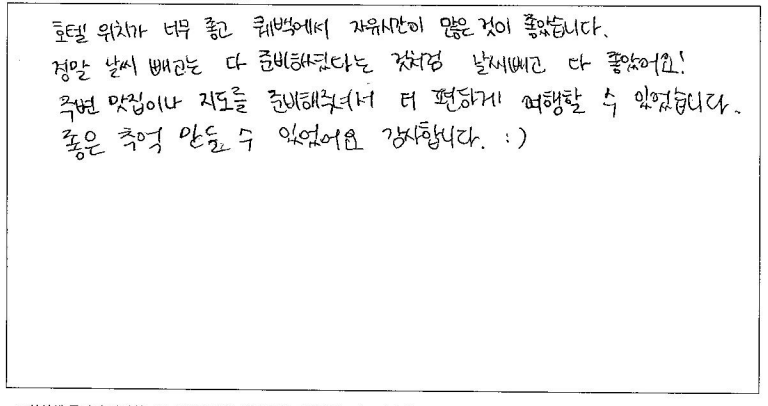 호텔 위치가 너무 좋고 퀘백에서 자유시간이 많은 것이 좋았습니다.
정말 날씨 빼고는 다 준비해뒀다는 것처럼 날씨빼고 다 좋았어요!
주변 맛집이나 지도를 준비해주셔서 더 편하게 여행할 수 있었습니다.
좋은 추억 만들 수 있었어요 감사합니다. :)